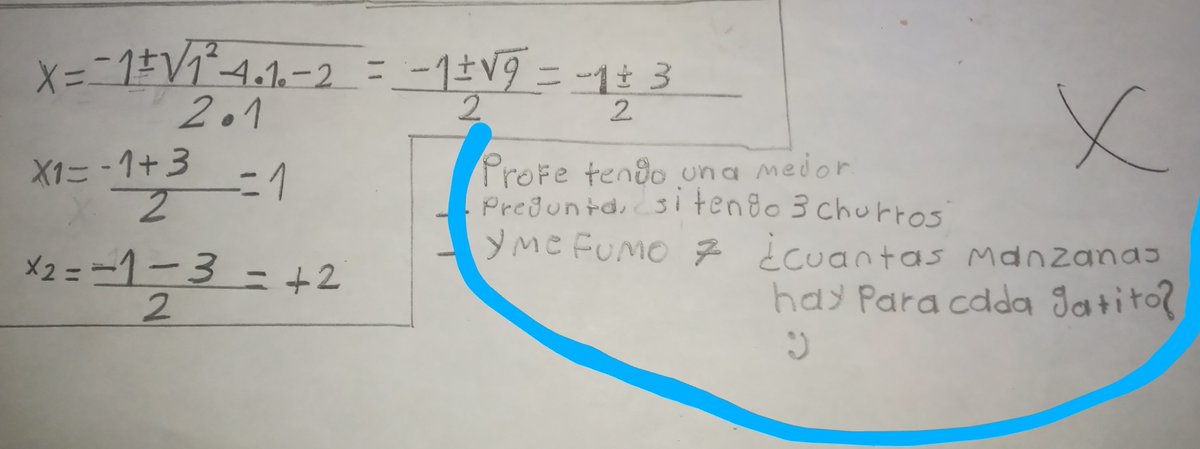 x = -1±√1²-4.1.-2 / 2.1 = -1±√9 / 2 = -1± 3 / 2
x1 = -1+3 / 2 = 1
x2 = -1-3 / 2 = +2
Profe tengo una mejor
Pregunta, si tengo 3 churros
y me fumo 7 ¿cuantas manzanas
hay Para cada gatito?
:)
X